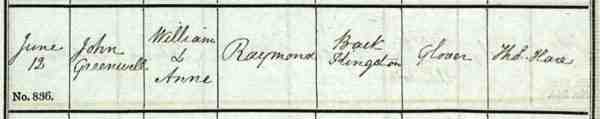 June
12
No. 836.
John
Greenwell
William
&
Anne
Raymond
Back
Glover
Thos. Hare